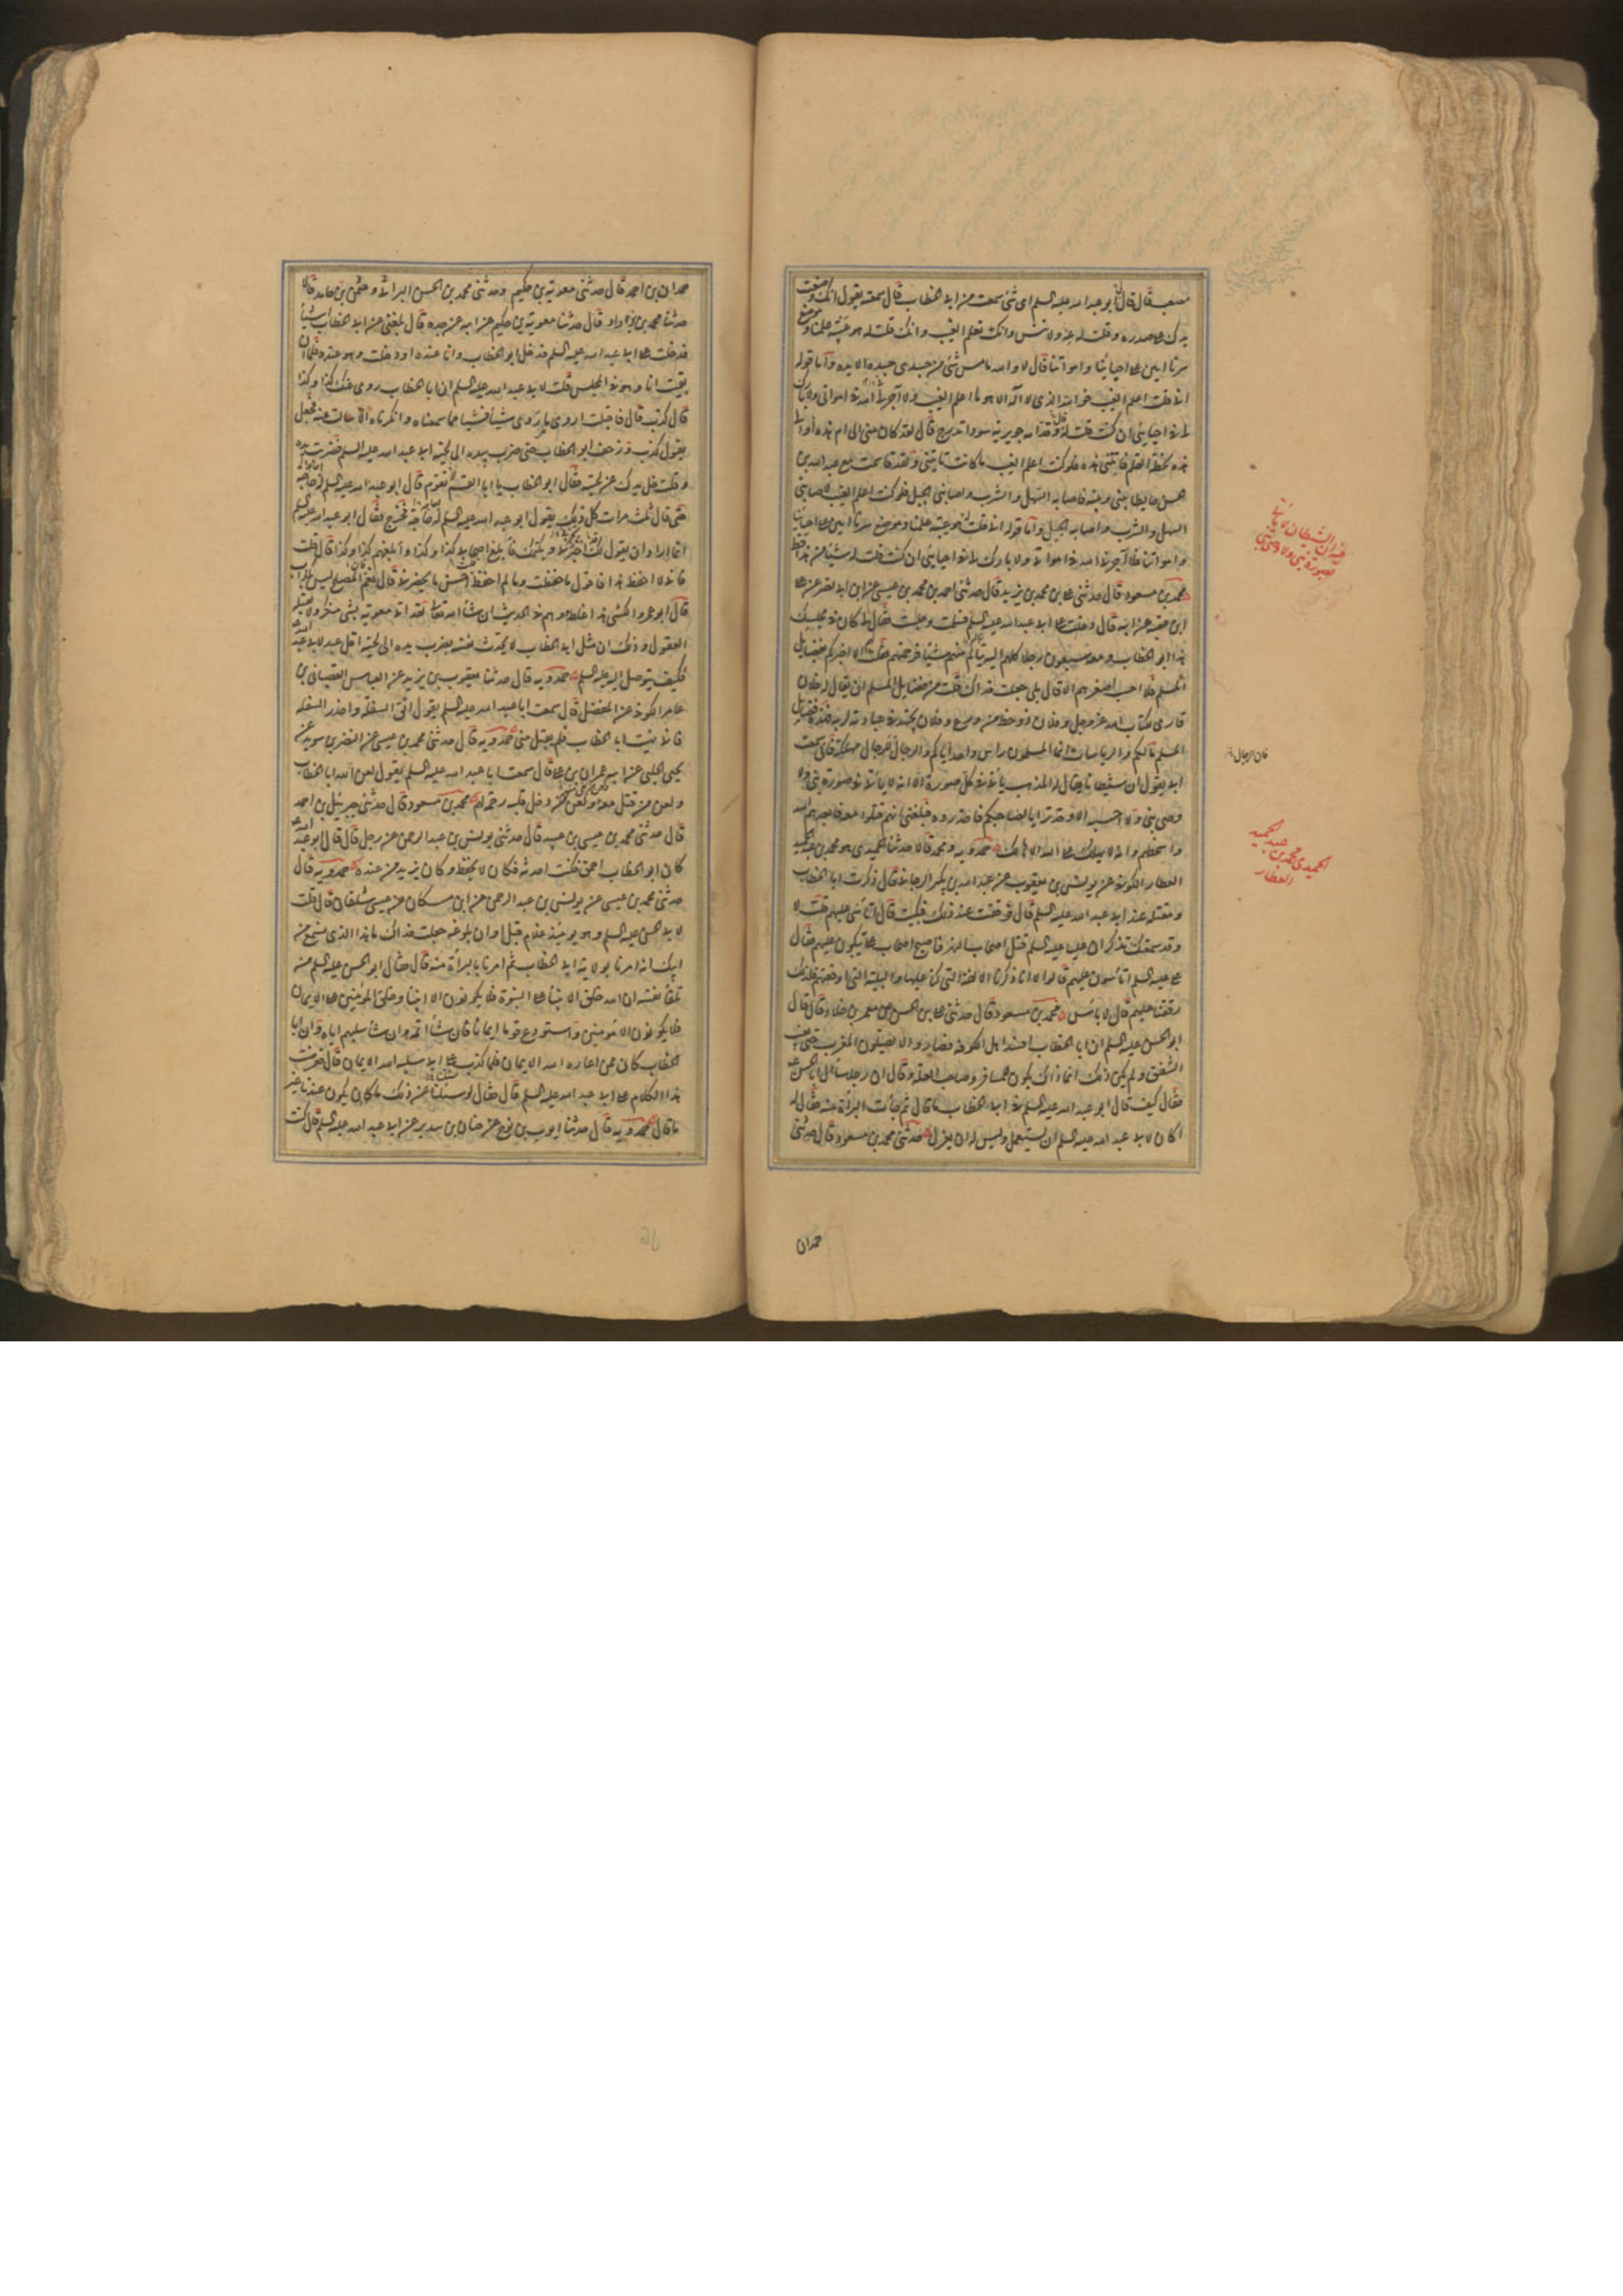 مصعب قال قال لى ابو عبد الله عليه السلم اى شئ سمعت من ابى الخطاب قال سمعته يقول انك وضعت
يدك على صدره وقلت له عه ولا تنس وانك تعلم الغيب وانك قلت له هو عيبة علمنا وموضع
سرنا امين على احيائنا وامواتنا قال لا والله ما مس شئ من جسدى جسده الا يده واما قوله
انى قلت اعلم الغيب فوالله الذى لا اله الا هو ما اعلم الغيب ولا آجرنى الله فى امواتى ولا بارك
لى فى احيائى ان كنت قلت له قال وقدامه جويرية سوداء تدرج قال لقد كان منى الى ام هذه او الى
هذه بخطة القلم فاتتنى هذه فلو كنت اعلم الغيب ما كانت تاتينى ولقد قاسمت مع عبد الله بن
الحسن حايطا بينى وبينه فاصابه السهل والشرب واصابنى الجبل فلو كنت اعلم الغيب لاصابنى
السهل والشرب واصابه الجبل واما قوله انى قلت له هو عيبة علمنا وموضع سرنا امين على احيائنا
وامواتنا فلا آجرنى الله فى امواتى ولا بارك لى فى احيائى ان كنت قلت له شيئا من هذا قط
محمد بن مسعود قال حدثنى على بن محمد بن يزيد قال حدثنى احمد بن محمد بن عيسى عن ابن ابى نصر عن على
ابن عقبه عن ابيه قال دخلت على ابى عبد الله عليه السلم فسلمت وجلست فقال لى كان فى مجلسك
هذا ابو الخطاب ومعه سبعون رجلا كلهم اليه يتالم منهم شيئا فرحمتهم فقلت لهم الا اخبركم بفضايل
المسلم فلا احسب اصغرهم الا قال بلى جعلت فداك قلت من فضايل المسلم ان يقال له فلان
قارى لكتاب الله عز وجل وفلان ذو حظ من ورع وفلان يجتهد فى عبادته لربه فهذه فضايل
المسلم مالكم والرياسات انما المسلمون راس واحد اياكم والرجال فان الرجال للرجال مهلكة فانى سمعت
ابى يقول ان شيطانا يقال له المذهب ياتى فى كل صورة الا انه لا ياتى فى صورة نبى ولا
وصى نبى ولا احسبه الا وقد تراءا لصاحبكم فاحذروه فبلغنى انهم قتلوا معه فابعدهم الله
واسخطهم وانه لا يهلك على الله الا هالك حمدويه ومحمد قالا حدثنا الحميدى هو محمد بن عبد الحميد
العطار الكوفى عن يونس بن يعقوب عن عبد الله بن بكير الرجانى قال ذكرت ابا الخطاب
ومقتله عند ابى عبد الله عليه السلم قال فرققت عند ذلك فبكيت فقال اتاسى عليهم فقلت لا
وقد سمعتك تذكر ان عليا عليه السلم قتل اصحاب النهر فاصبح اصحاب على يبكون عليهم فقال
على عليه السلم اتاسون عليهم قالوا لا انا ذكرنا الالفة التى كنا عليها والبلية التى اوقعتهم فلذلك
رققنا عليهم قال لا باس محمد بن مسعود قال حدثنى على بن الحسن عن معمر بن خلاد قال قال
ابو الحسن عليه السلم ان ابا الخطاب افسد اهل الكوفة فصاروا لا يصلون المغرب حتى يغيب
الشفق ولم يكن ذلك انما ذاك يكون للمسافر وصاحب العلة وقال ان رجلا سال ابا الحسن ع
فقال كيف قال ابو عبد الله عليه السلم فى ابى الخطاب ما قال ثم جاءت البراءة منه فقال له
اكان لابى عبد الله عليه السلم ان يستعمل وليس له ان يعزل حدثنى محمد بن مسعود قال حدثنى
حمدان
فيه ان الشيطان لا يتمثل
بصورة نبى ولا وصى نبى
فان الرجال
الحميدى محمد بن
عبد الحميد
العطار
حمدان بن احمد قال حدثنى معوية بن حكيم وحدثنى محمد بن الحسن البراثى وعثمن بن حامد قالا
حدثنا محمد بن يزداد قال حدثنا معوية بن حكيم عن ابيه عن جده قال بلغنى عن ابى الخطاب اشياء
فدخلت على ابى عبد الله عليه السلم فدخل ابو الخطاب وانا عنده او دخلت وهو عنده فلما ان
بقيت انا وهو فى المجلس قلت لابى عبد الله عليه السلم ان ابا الخطاب روى عنك كذا وكذا
قال كذب قال فاقبلت اروى ما روى شيئا فشيئا مما سمعناه وانكرناه الا سالت عنه فجعل
يقول كذب وزحف ابو الخطاب حتى ضرب بيده الى لحية ابى عبد الله عليه السلم فضربت يده
وقلت خل يدك عن لحيته فقال ابو الخطاب يا ابا القسم لا تقوم قال ابو عبد الله عليه السلم له حاجة
حتى قال ثلث مرات كل ذلك يقول ابو عبد الله عليه السلم له حاجة فخرج فقال ابو عبد الله عليه السلم
انما اراد ان يقول لك اخبرنى ويكتمك فابلغ اصحابى كذا وكذا وابلغهم كذا وكذا قال قلت
فانى لا احفظ هذا فاقول ما حفظت وما لم احفظ قلت احسن ما يحضرنى قال نعم المصلح ليس بكذاب
قال ابو عمرو الكشى هذا غلط ووهم فى الحديث ان شاء الله تعالى لقد اتى معوية بشى منكر لا تقبله
العقول وذلك ان مثل ابى الخطاب لا يحدث نفسه بضرب يده الى لحية اقل عبد لابى عبد الله
فكيف يتوصل اليه عليه السلم حمدويه قال حدثنا يعقوب بن يزيد عن العباس القصبانى بن
عامر الكوفى عن المفضل قال سمعت ابا عبد الله عليه السلم يقول اتق السفلة واحذر السفلة
فانى نهيت ابا الخطاب فلم يقبل منى حمدويه قال حدثنى محمد بن عيسى عن النضر بن سويد عن
يحيى الحلبى عن ابيه عمران بن على قال سمعت ابا عبد الله عليه السلم يقول لعن الله ابا الخطاب
ولعن من قتل معه ولعن من بقى منهم ولعن من دخل قلبه رحمة لهم محمد بن مسعود قال حدثنى جبرئيل بن احمد
قال حدثنى محمد بن عيسى بن عبيد قال حدثنى يونس بن عبد الرحمن عن رجل قال قال ابو عبد الله
كان ابو الخطاب احمق فكنت احدثه فكان لا يحفظ وكان يزيد من عنده حمدويه قال
حدثنى محمد بن عيسى عن يونس بن عبد الرحمن عن ابن مسكان عن عيسى شلقان قال قلت
لابى الحسن عليه السلم وهو يومئذ غلام قبل اوان بلوغه جعلت فداك ما هذا الذى يسمع من
ابيك انه امرنا بولاية ابى الخطاب ثم امرنا بالبراءة منه قال فقال ابو الحسن عليه السلم من
تلقاء نفسه ان الله خلق الانبياء على النبوة فلا يكونون الا انبياء وخلق المؤمنين على الايمان
فلا يكونون الا مؤمنين واستودع قوما ايمانا فان شاء اتمه وان شاء سلبهم اياه وان ابا
الخطاب كان ممن اعاره الله الايمان فلما كذب على ابى سلبه الله الايمان قال فعرضت
هذا الكلام على ابى عبد الله عليه السلم قال فقال لو سئلتنا عن ذلك ما كان يكون عندنا غير
ما قال حمدويه قال حدثنا ايوب بن نوح عن حنان بن سدير عن ابى عبد الله عليه السلم قال كنت